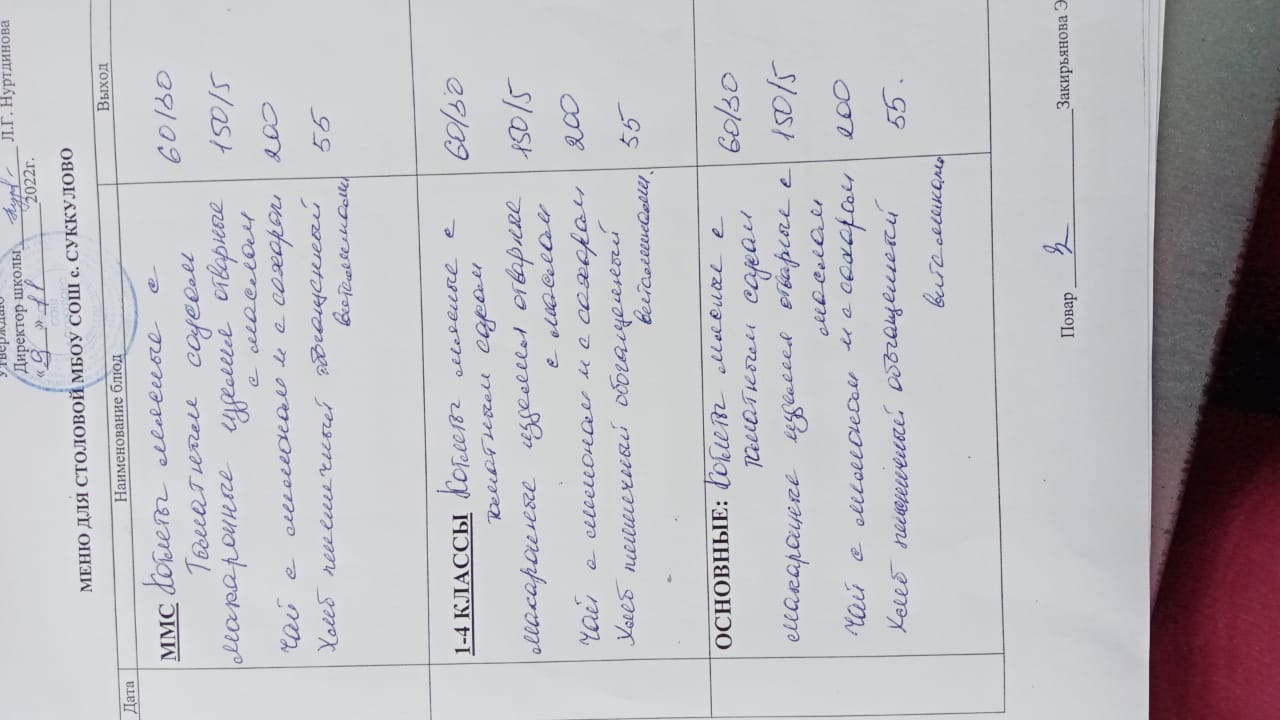 Утверждаю
Директор школы Л.Г. Нуртдинова
« 9 » 11 2022г.
МЕНЮ ДЛЯ СТОЛОВОЙ МБОУ СОШ с. СУККУЛОВО
Дата Наименование блюд Выход
ММС Котлеты мясные с 60/30
томатным соусом
макаронные изделия отварные 150/5
с маслом
Чай с лимоном и с сахаром 200
Хлеб пшеничный обогащенный 55
витаминами
1-4 КЛАССЫ Котлеты мясные с 60/30
томатным соусом
макаронные изделия отварные 150/5
с маслом
Чай с лимоном и с сахаром 200
Хлеб пшеничный обогащенный 55
витаминами.
ОСНОВНЫЕ: Котлеты мясные с 60/30
томатным соусом
макаронные изделия отварные с 150/5
маслом
Чай с лимоном и с сахаром 200
Хлеб пшеничный обогащенный 55.
витаминами
Повар Закирьянова Э